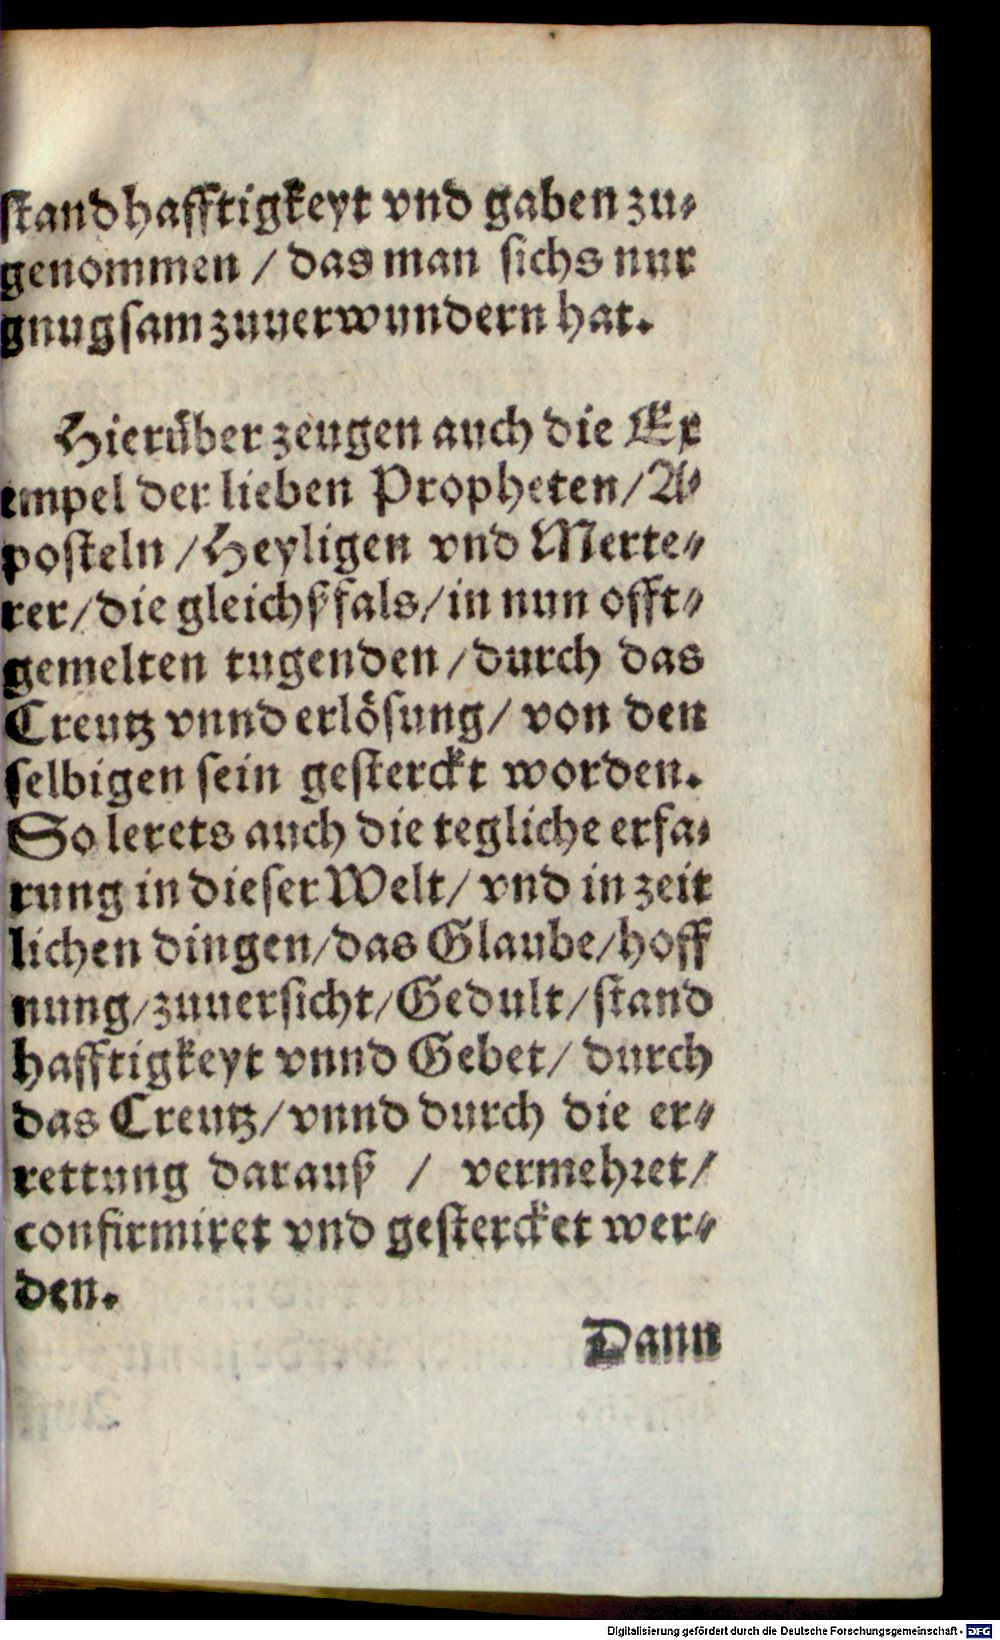 standhafftigkeyt vnd gaben zu⸗
genommen / das man sichs nur
gnugsam zuuerwundern hat.
Hierüber zeugen auch die Ex
empel der lieben Propheten / A⸗
posteln / Heyligen vnd Merte⸗
rer / die gleichßfals / in nun offt⸗
gemelten tugenden / durch das
Creutz vnnd erlösung / von den
selbigen sein gesterckt worden.
So lerets auch die tegliche erfa⸗
rung in dieser Welt / vnd in zeit
lichen dingen / das Glaube / hoff
nung / zuuersicht / Gedult / stand
hafftigkeyt vnnd Gebet / durch
das Creutz / vnnd durch die er⸗
rettung darauß / vermehret /
confirmiret vnd gestercket wer⸗
den.
Dann
Digitalisierung gefördert durch die Deutsche Forschungsgemeinschaft - DFG